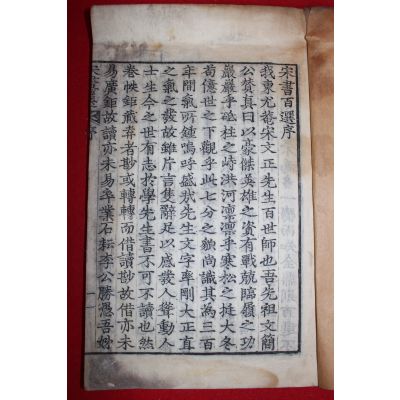 宋書百選序
我東尤菴宋文正先生百世師也吾先祖文簡
公贊眞曰以豪傑英雄之資有戰兢臨履之功
巖巖乎砥柱之峙洪河凜凜乎寒松之挺大冬
苟億世之下觀乎此七分之貌尚識其爲三百
年間氣所鍾嗚呼盛哉先生文字率剛大正直
之氣之發故雖片言隻辭足以感發人聳動人
士生今之世有志於學先生書不可不讀也然
卷帙鉅藏弆者尠或轉轉而借讀尠故借亦未
易廣鉅故讀亦未易卒業石耘李公勝愚吾姒